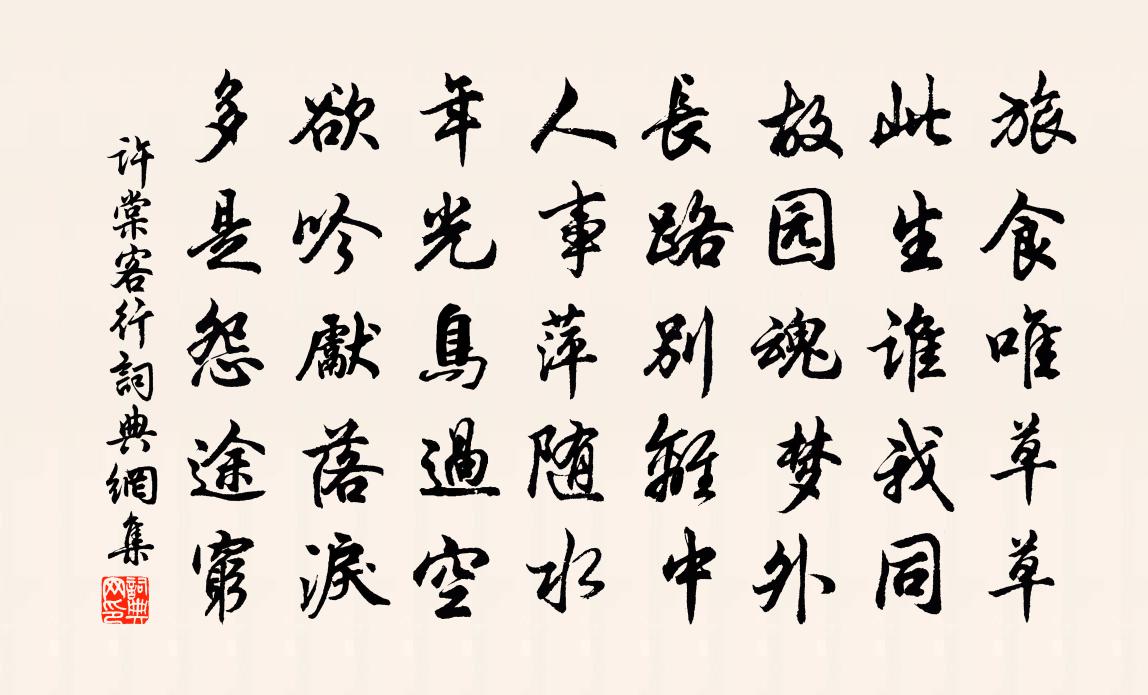 旅食唯草草
此生谁我同
故园魂梦外
長路别離中
人事萍随水
年光鳥過空
欲吟先落淚
多是怨途窮
許棠客行詞典網集
詞典网印